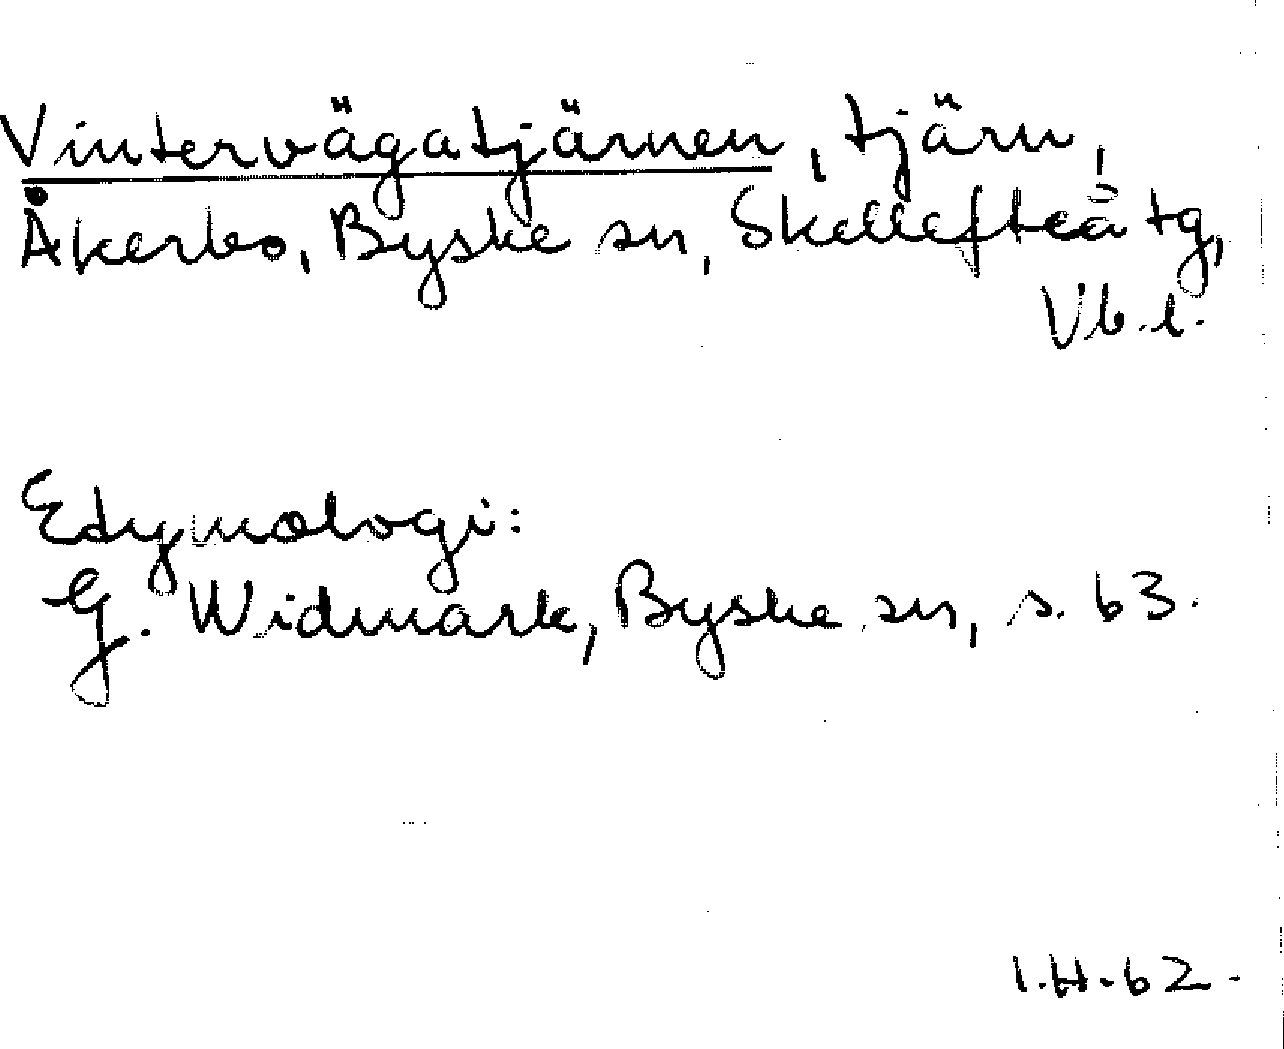 Vintervägatjärnen, tjärn,
Åkerbo, Byske sn, Skellefteå tg,
Vb. l.
Edymologi:
G. Widmark, Byske sn, s. 63.
I.H. 62.